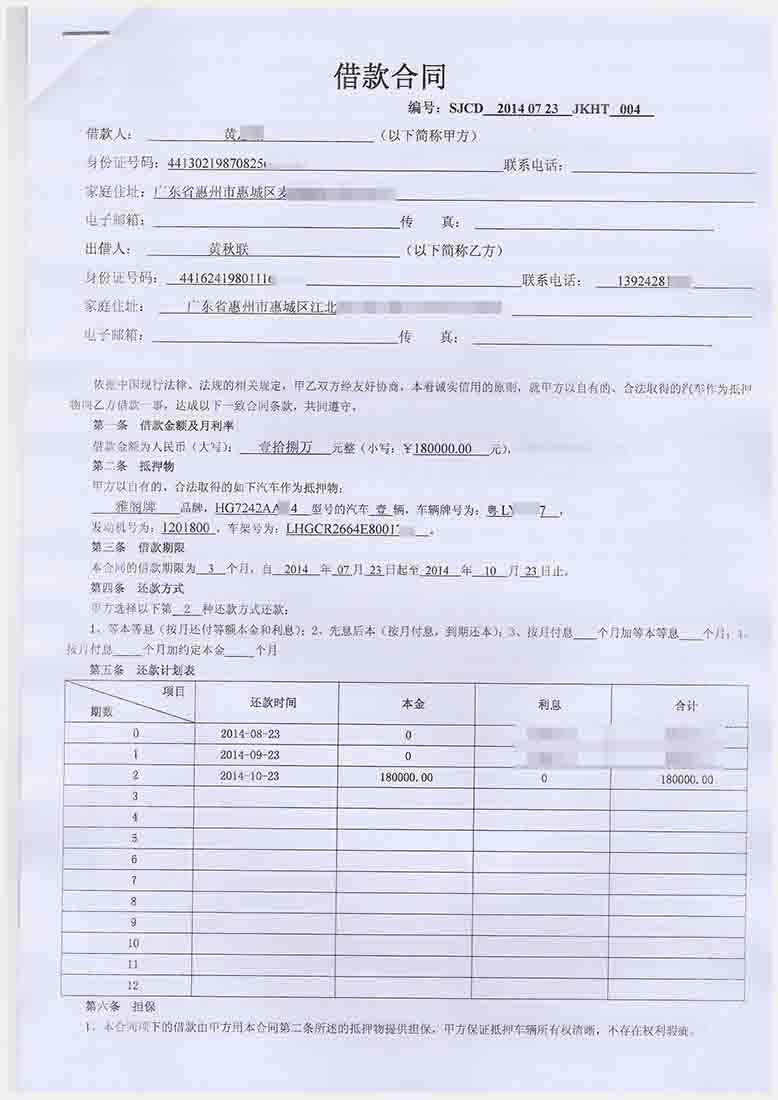 借款合同
编号：SJCD 2014 07 23 JKHT 004
借款人： 黄 （以下简称甲方）
身份证号码：44130219870825 联系电话：
家庭住址：广东省惠州市惠城区麦
电子邮箱： 传 真：
出借人： 黄秋联 （以下简称乙方）
身份证号码： 4416241980111 联系电话： 1392428
家庭住址： 广东省惠州市惠城区江北
电子邮箱： 传 真：
依据中国现行法律、法规的相关规定，甲乙双方经友好协商，本着诚实信用的原则，就甲方以自有的、合法取得的汽车作为抵押
物向乙方借款一事，达成以下一致合同条款，共同遵守。
第一条 借款金额及月利率
借款金额为人民币（大写）： 壹拾捌万 元整（小写：￥180000.00 元），
第二条 抵押物
甲方以自有的、合法取得的如下汽车作为抵押物：
雅阁牌 品牌，HG7242AA 4 型号的汽车 壹 辆，车辆牌号为：粤L 7 ，
发动机号为：1201800 ，车架号为：LHGCR2664E8001 。
第三条 借款期限
本合同的借款期限为 3 个月，自 2014 年 07 月 23 日起至 2014 年 10 月 23 日止。
第四条 还款方式
甲方选择以下第 2 种还款方式还款：
1、等本等息（按月还付等额本金和利息）；2、先息后本（按月付息，到期还本）；3、按月付息 个月加等本等息 个月；4、
按月付息 个月加约定本金 个月
第五条 还款计划表
项目 期数 还款时间 本金 利息 合计
0 2014-08-23 0
1 2014-09-23 0
2 2014-10-23 180000.00 0 180000.00
3
4
5
6
7
8
9
10
11
12
第六条 担保
1、本合同项下的借款由甲方用本合同第二条所述的抵押物提供担保，甲方保证抵押车辆所有权清晰，不存在权利瑕疵。